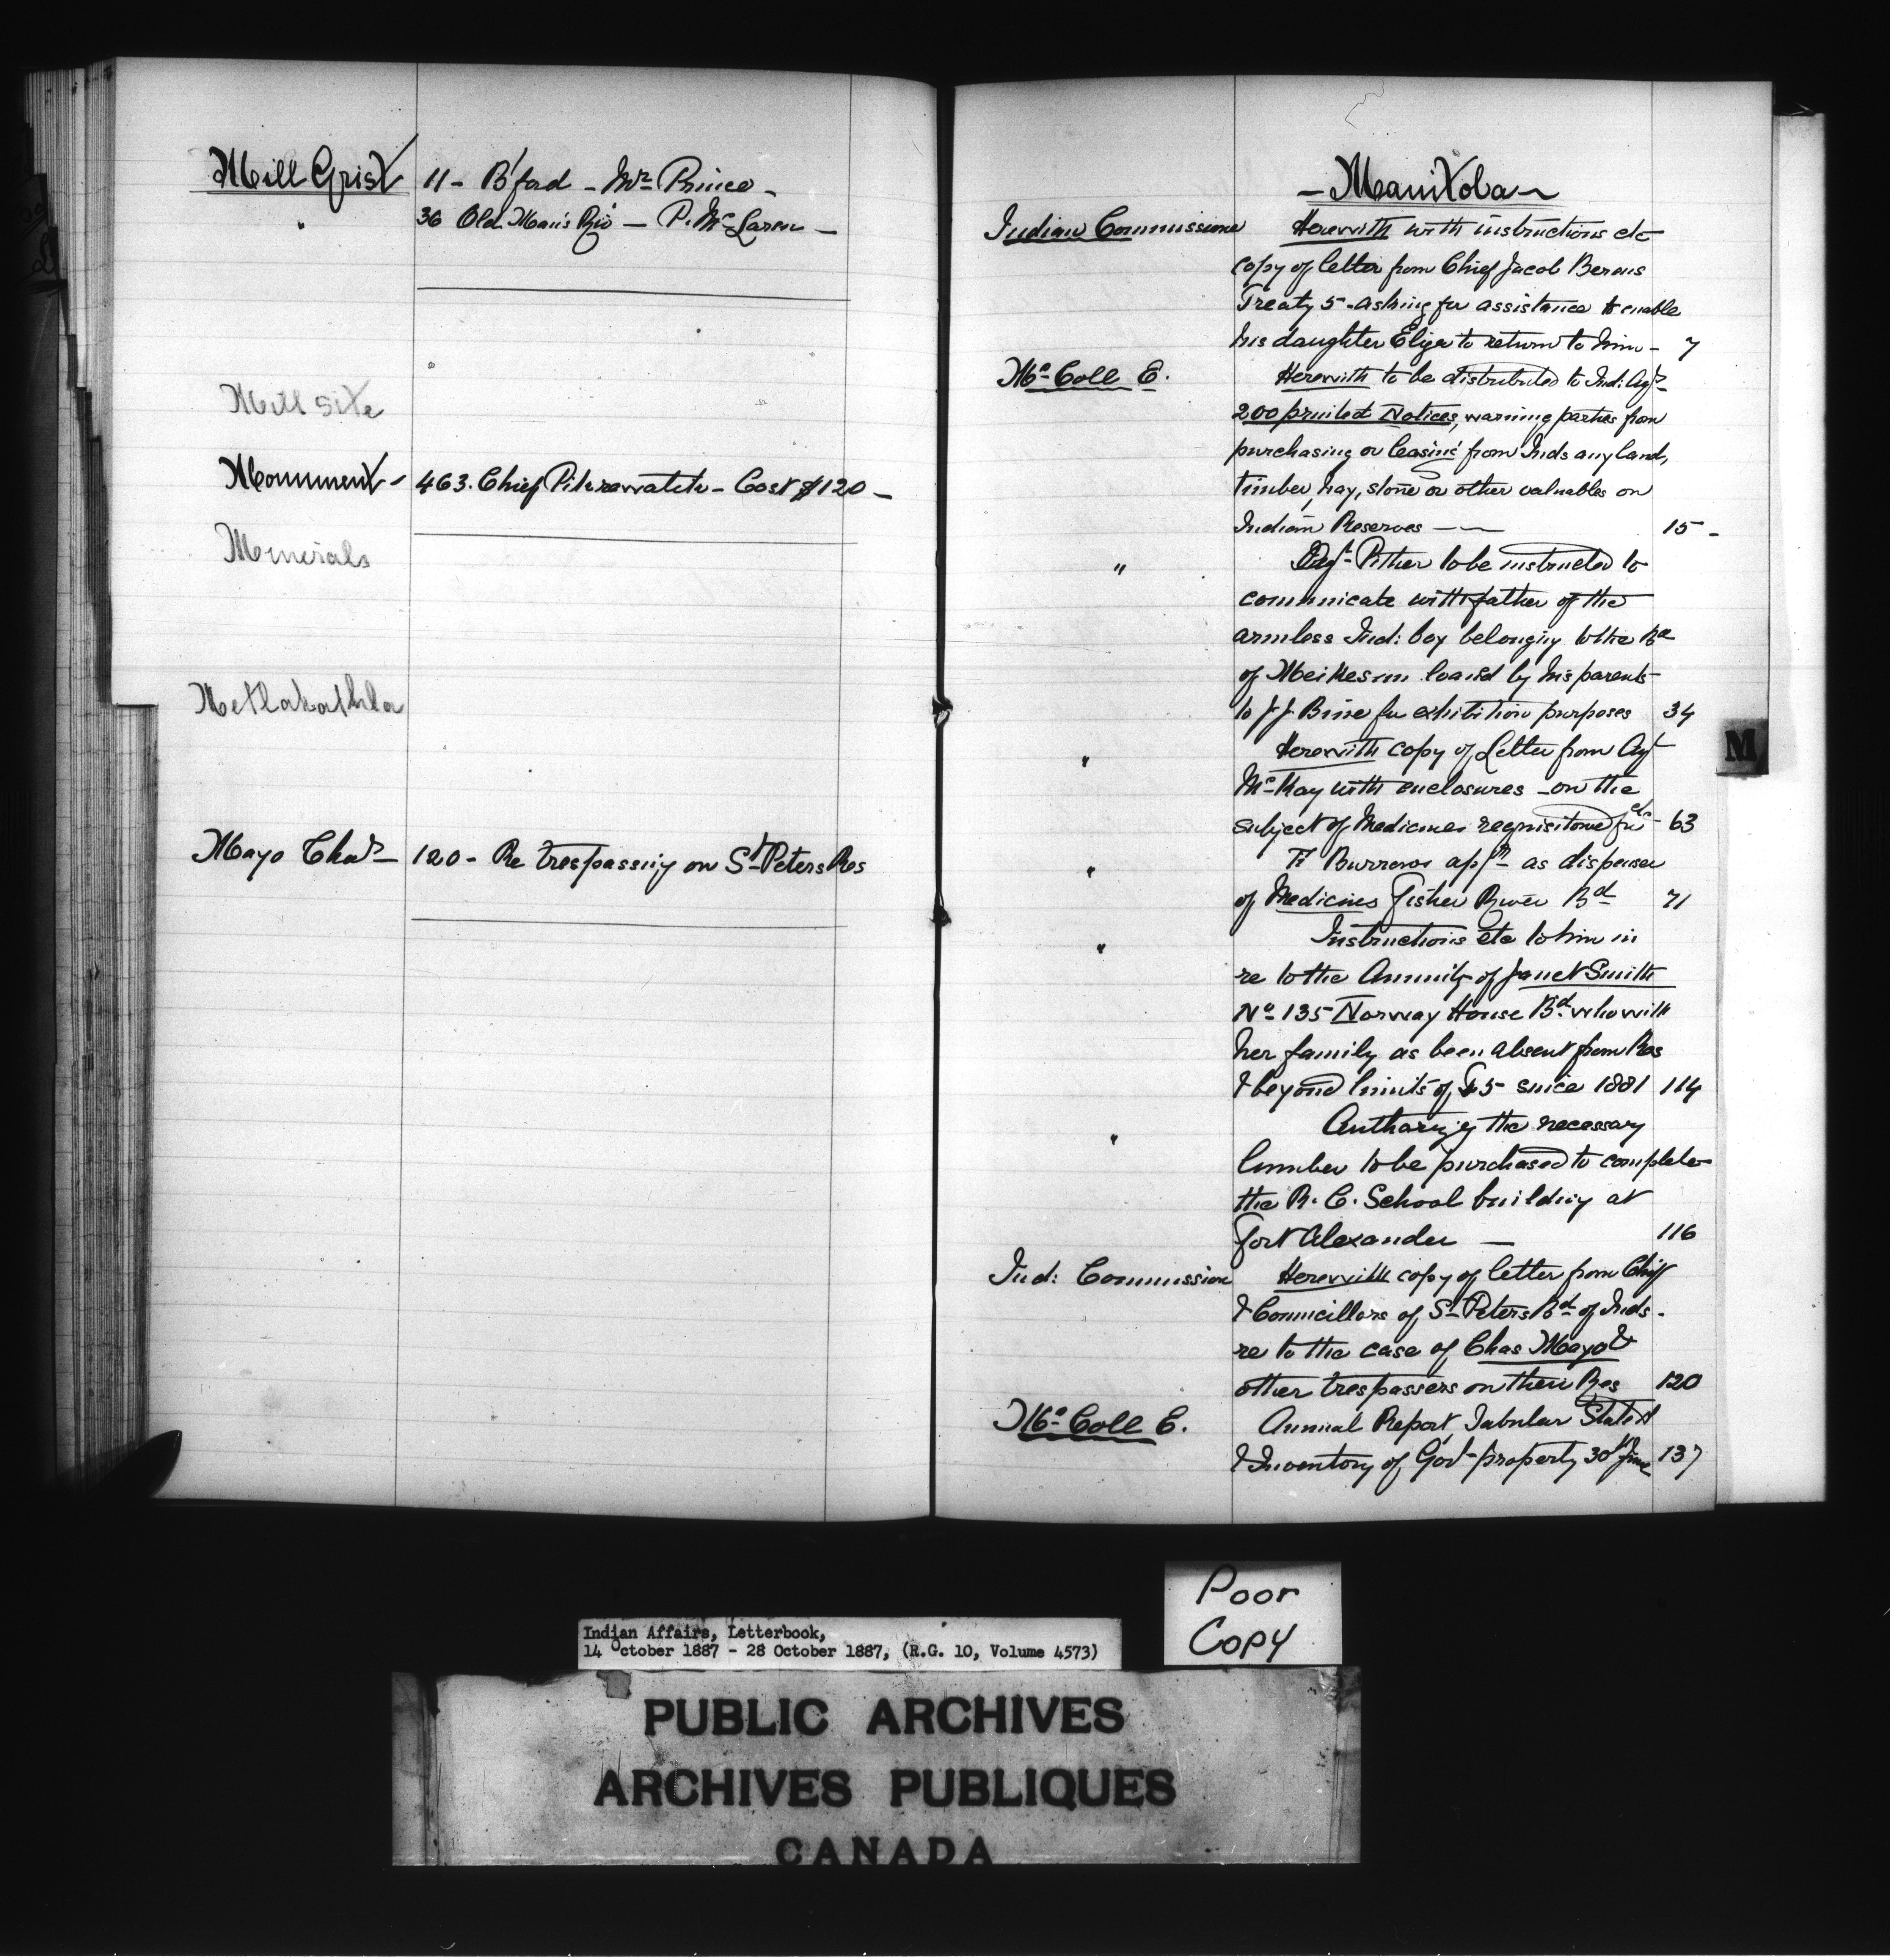 Mill Grist 11 - B'ford - Mr Prince -
" 36 Old Man's Riv - P. McLaren -
Mill Site
Monument - 463. Chief - Cost $120 -
Minerals
Metlakathla
Mayo Chas - 120 - Re trespassing on St Peters Res
- Manitoba -
Indian Commissioner Herewith with instructions etc
copy of letter from Chief Jacob Berens
Treaty 5 - asking for assistance to enable
his daughter Eliza to return to him - 7
McColl E. Herewith to be distributed to Ind: Agts
200 printed Notices, warning parties from
purchasing or leasing from Inds any land,
timber, hay, stone or other valuables on
Indian Reserves — 15 -
" Agt Pither to be instructed to
communicate with father of the
armless Ind: boy belonging to the Bd
of loaned by his parents
to J J for exhibition purposes 34
" Herewith copy of Letter from Agt
McKay with enclosures - on the
subject of Medicines requisitioned for etc 63
" F Burrows appt as dispenser
of Medicines Fisher River Bd 71
" Instructions etc to him in
re to the Annuity of Janet Smith
No 135 Norway House Bd. who with
her family as been absent from Res
& beyond limits of T 5 since 1881 114
" Authorizg the necessary
lumber to be purchased to complete
the R. C. School building at
Fort Alexander — 116
Ind: Commission Herewith copy of letter from Chief
& Councillors of St Peters Bd of Inds -
re to the case of Chas Mayo &
other trespassers on their Res 120
McColl E. Annual Report, Tabular Statet
& Inventory of Govt property 30th June 137
M
Poor
Copy
Indian Affairs, Letterbook,
14 October 1887 - 28 October 1887, (R.G. 10, Volume 4573)
PUBLIC ARCHIVES
ARCHIVES PUBLIQUES
CANADA